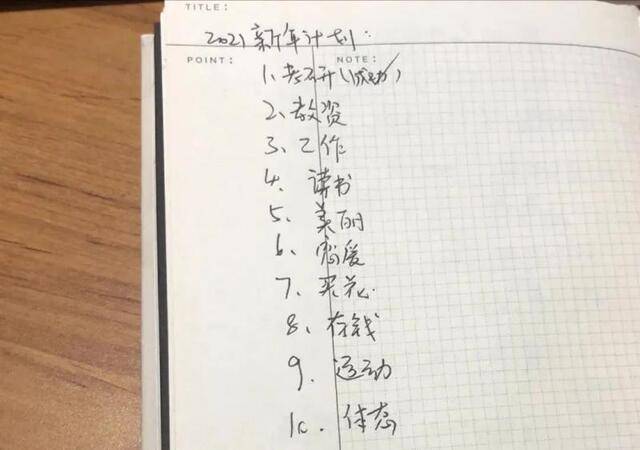 TITLE:
2021新年计划:
POINT:
NOTE:
1、考研(成功)
2、教资
3、工作
4. 读书
5、美丽
6、恋爱
7、买花
8、存钱
9. 运动
10. 体态